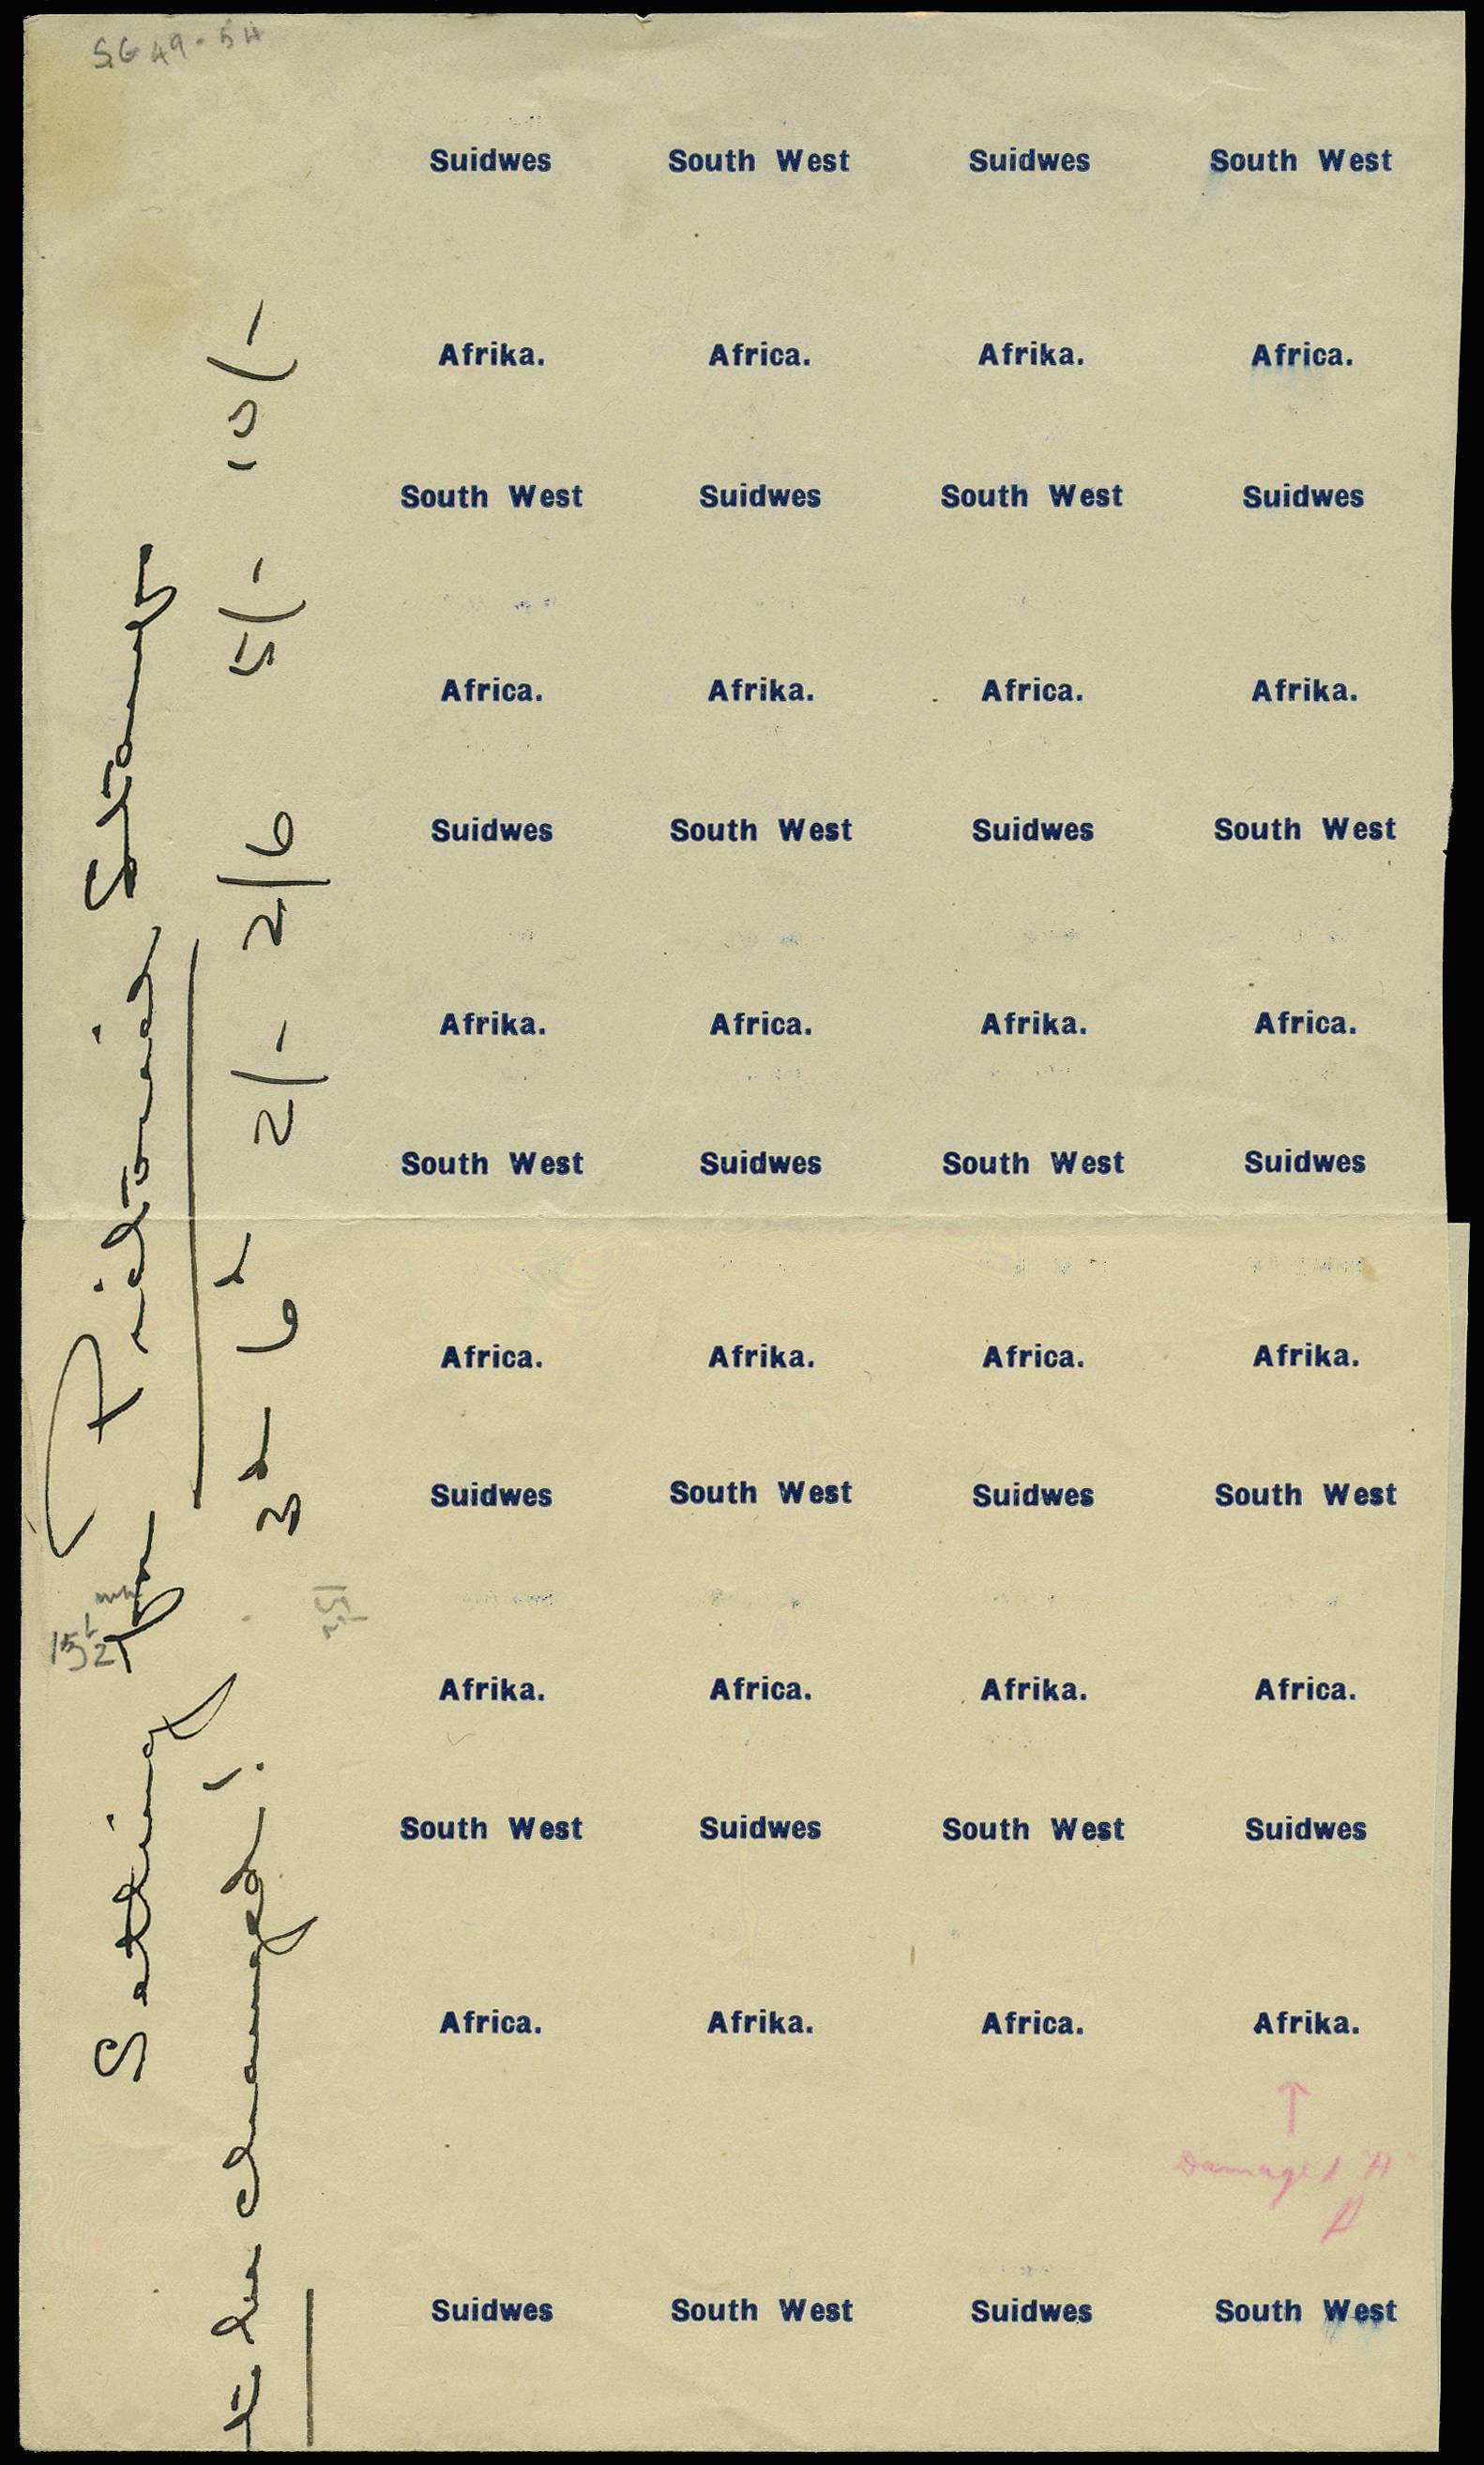 SG 49-54
Suidwes South West Suidwes South West
Afrika. Africa. Afrika. Africa.
South West Suidwes South West Suidwes
Africa. Afrika. Africa. Afrika.
Suidwes South West Suidwes South West
Afrika. Africa. Afrika. Africa.
South West Suidwes South West Suidwes
Africa. Afrika. Africa. Afrika.
Suidwes South West Suidwes South West
Afrika. Africa. Afrika. Africa.
South West Suidwes South West Suidwes
Africa. Afrika. Africa. Afrika.
Damaged "A"
A
Suidwes South West Suidwes South West
Setting for Pictorial Stamps
to be changed! 3d 6d 2/- 2/6 5/- 10/-